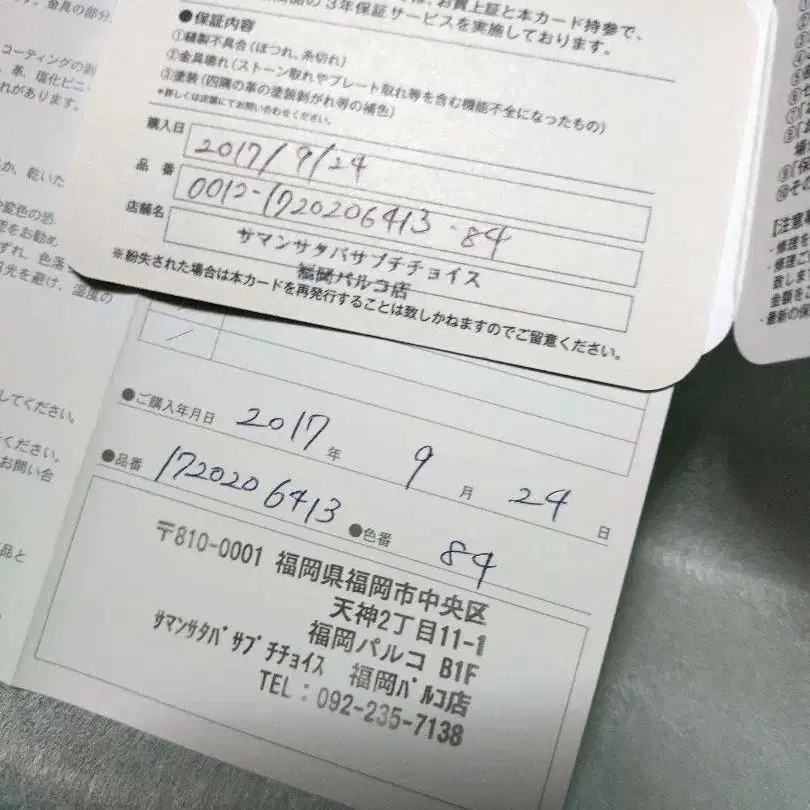 お買上証と本カード持参で、
3年保証サービスを実施しております。
●保証内容
①縫製不具合（ほつれ、糸切れ）
②金具壊れ（ストーン取れやプレート取れ等を含む機能不全になったもの）
③塗装（四隅の革の塗装剥がれ等の補色）
*詳しくは店舗にてお問い合わせください。
購入日 2017/9/24
品番 0012-1720206413-84
店舗名 サマンサタバサプチチョイス
福岡パルコ店
※紛失された場合は本カードを再発行することは致しかねますのでご留意ください。
金具の部分
コーティングの剥
革、塩化ビニ
れがあります。
乾いた
変色の恐
をお勧め
ずれ、色落
光を避け、湿度の
してください。
ください。
お問い合
品と
●ご購入年月日 2017年 9月 24日
●品番 1720206413 ●色番 84
〒810-0001 福岡県福岡市中央区
天神2丁目11-1
福岡パルコ B1F
ｻﾏﾝｻﾀﾊﾞｻﾌﾟﾁﾁｮｲｽ 福岡ﾊﾟﾙｺ店
TEL：092-235-7138
【注意
・修理を
・修理こ
致しま
金額をこ
・最新の保